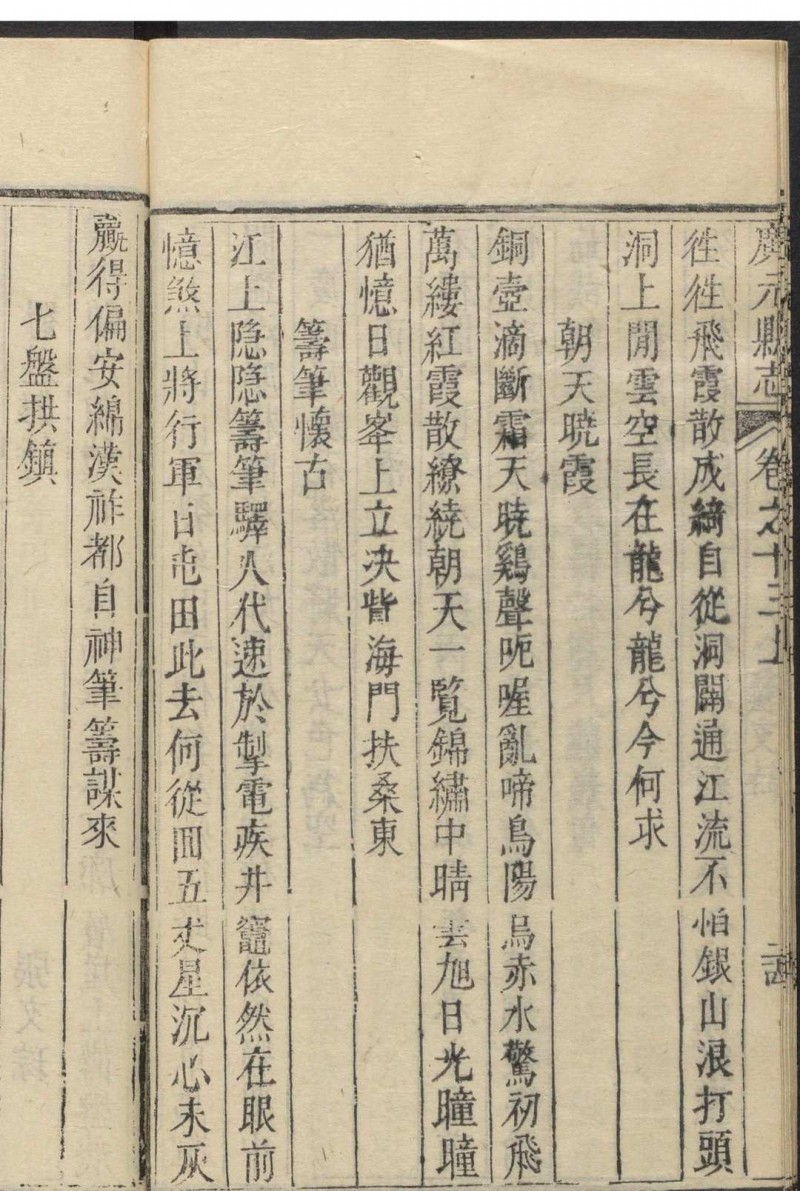 廣元縣志　卷之十三上
徃徃飛霞散成綺自從洞闢通江流不怕銀山浪打頭
洞上閒雲空長在龍兮龍兮今何求
朝天曉霞
銅壺滴斷霜天曉鷄聲呃喔亂啼鳥陽烏赤水驚初飛
萬縷紅霞散繚繞朝天一覧錦繡中晴雲旭日光曈曈
猶憶日觀峯上立決眥海門扶桑東
籌筆懷古
江上隐隐籌筆驛人代速於掣電疾井竈依然在眼前
憶煞上將行軍日屯田此去何從囬五丈星沉心未灰
贏得偏安綿漢祚都自神筆籌謀來
七盤拱鎮